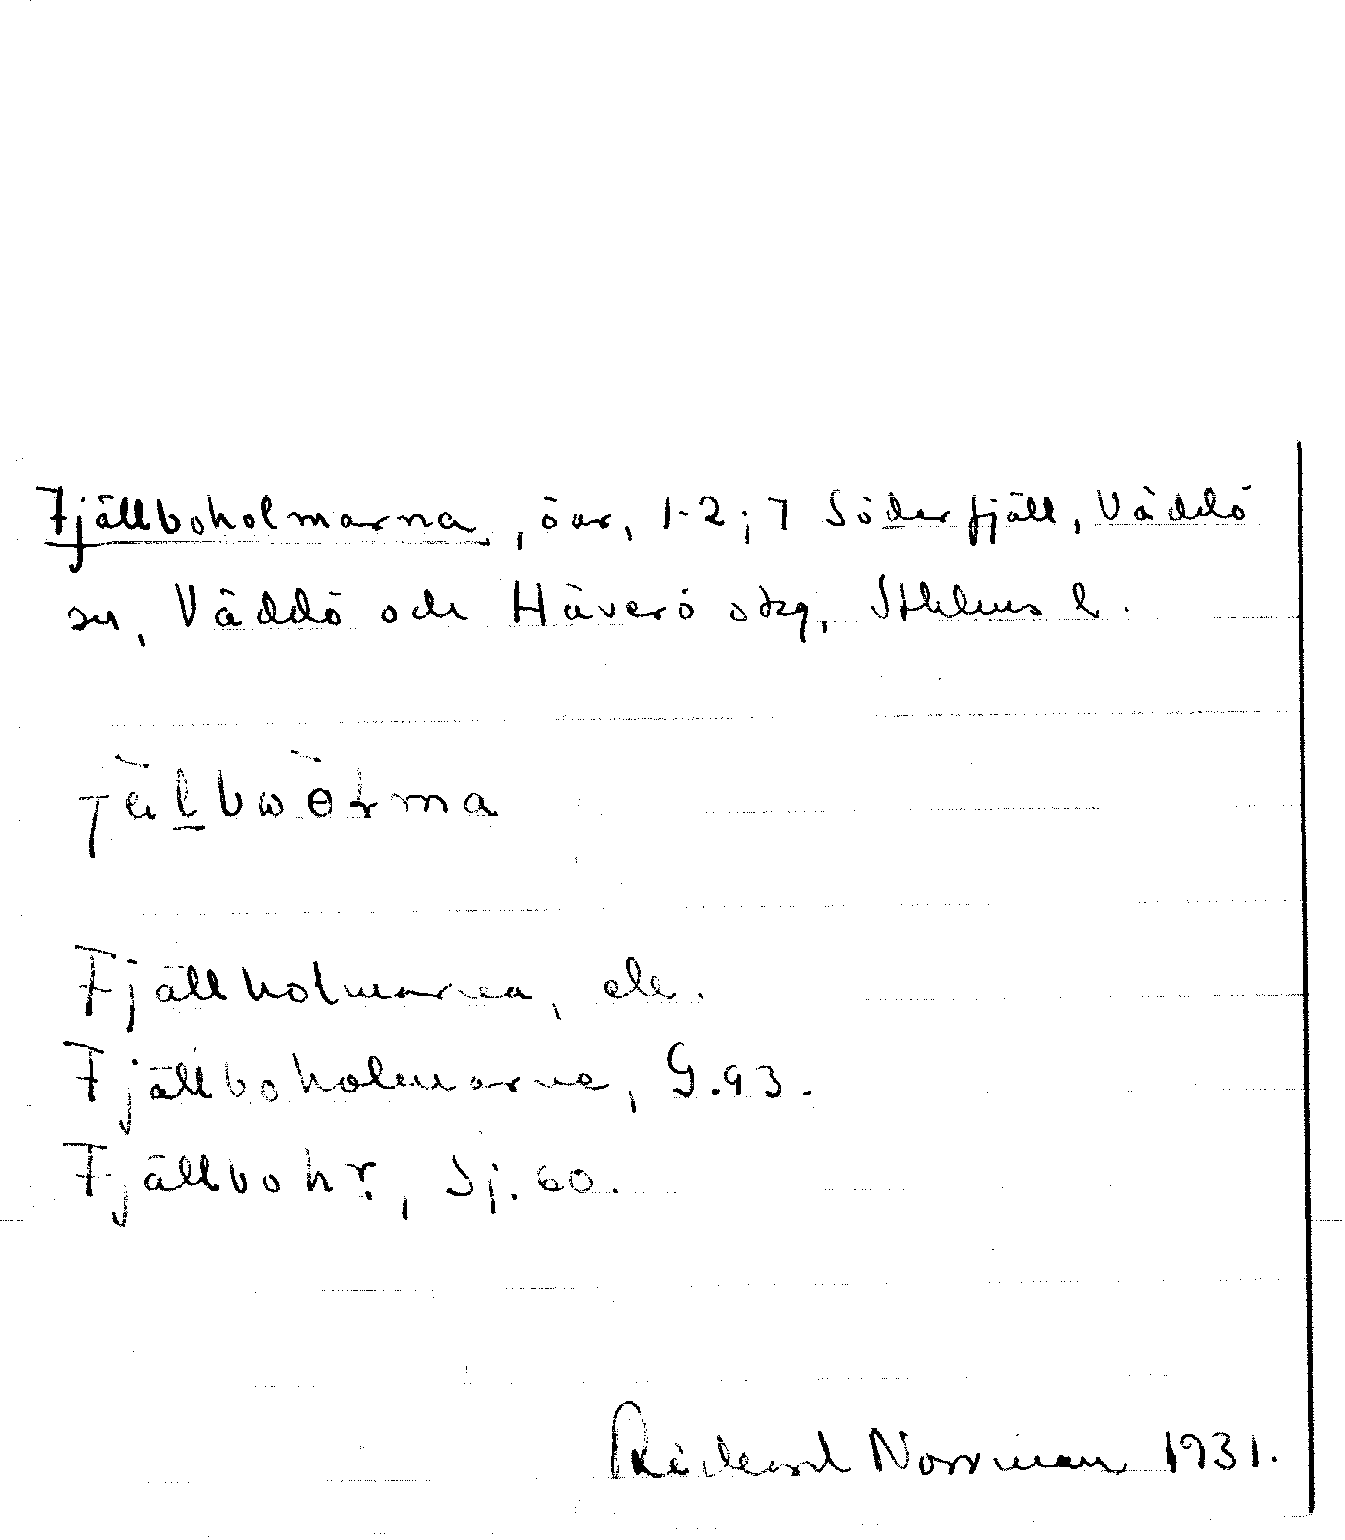 Fjällboholmarna, öar, 1-2; 7 Söderfjäll, Väddö
sn, Väddö och Häverö skg, Sthlms l.
Fjällholmarna, ek.
Fjällboholmarna, G.93.
Fjällbohr., Sj.60.
Rickard Norrman 1931.